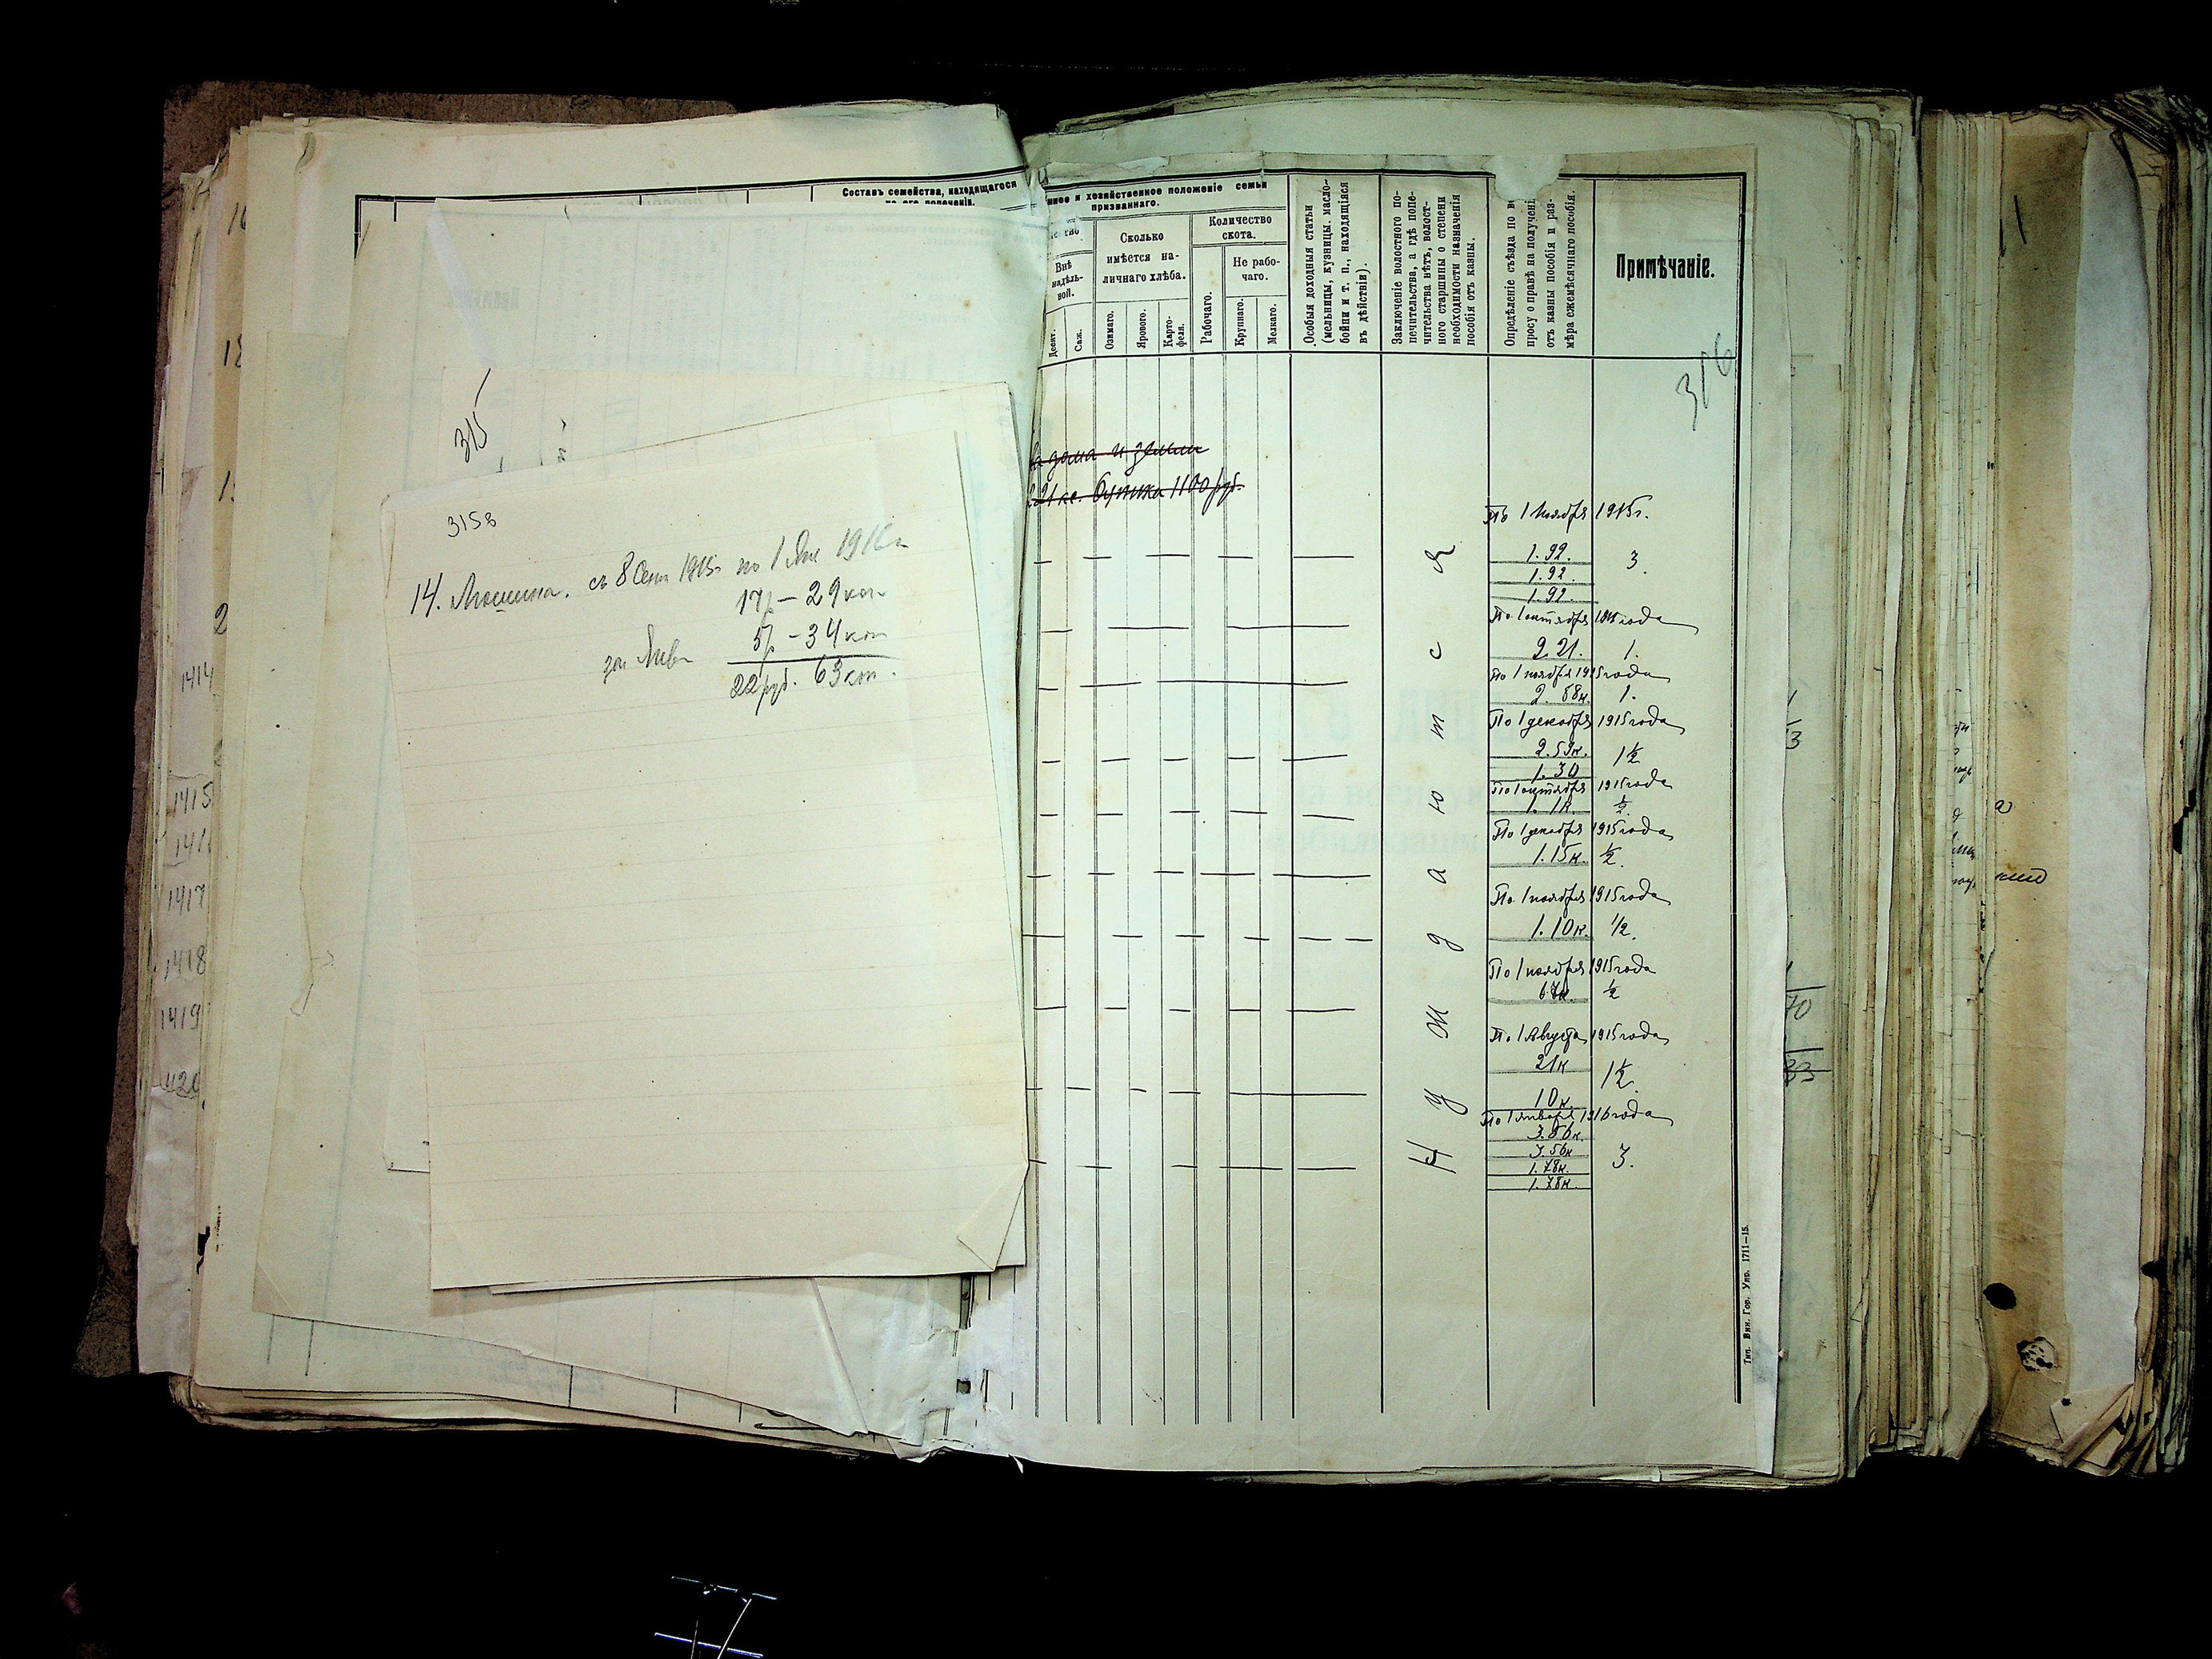 Составъ семейства, находящагося
315
315в
14. с 8 Сент 1915г по 1 Янв 1916г
17р – 29 коп
за Янв 5р – 34 коп
22 руб. 63 коп.
1414
1415
1417
1418
1419
420
и хозяйственное положеніе семьи
призваннаго.
Внѣ
надѣль-
ной.
Десят.
Саж.
Сколько
имѣется на-
личнаго хлѣба.
Озимаго.
Ярового.
Карто-
феля.
Количество
скота.
Рабочаго.
Не рабо-
чаго.
Крупнаго.
Мелкаго.
Особыя доходныя статьи
(мельницы, кузницы, масло-
бойни и т. п., находящіяся
въ дѣйствіи).
Заключеніе волостного по-
печительства, а гдѣ попе-
чительства нѣтъ, волост-
ного старшины о степени
необходимости назначенія
пособія отъ казны.
Опредѣленіе съѣзда по во
просу о правѣ на получені
отъ казны пособія и раз-
мѣра ежемѣсячнаго пособія.
Примѣчаніе.
316
дома и земли
1100 руб.
Нуждаются
По 1 Ноября 1915г.
1.92. 3.
1.92.
1.92.
По 1 октября 1915 года
2.21. 1.
По 1 ноября 1915 года
2 88к. 1.
По 1 декабря 1915 года
2.59к. 1½
1.30
По 1 октября 1915 года
1. 1к. ½
По 1 декабря 1915 года
1.15к. ½.
По 1 ноября 1915 года
1.10к. ½.
По 1 ноября 1915 года
67к. ½
По 1 Августа 1915 года
21к 1½
10к.
По 1 января 1916 года
3.56к.
3.56к 3.
1.78к.
1.78к.
Тип. Вин. Гор. Упр. 1711—15.